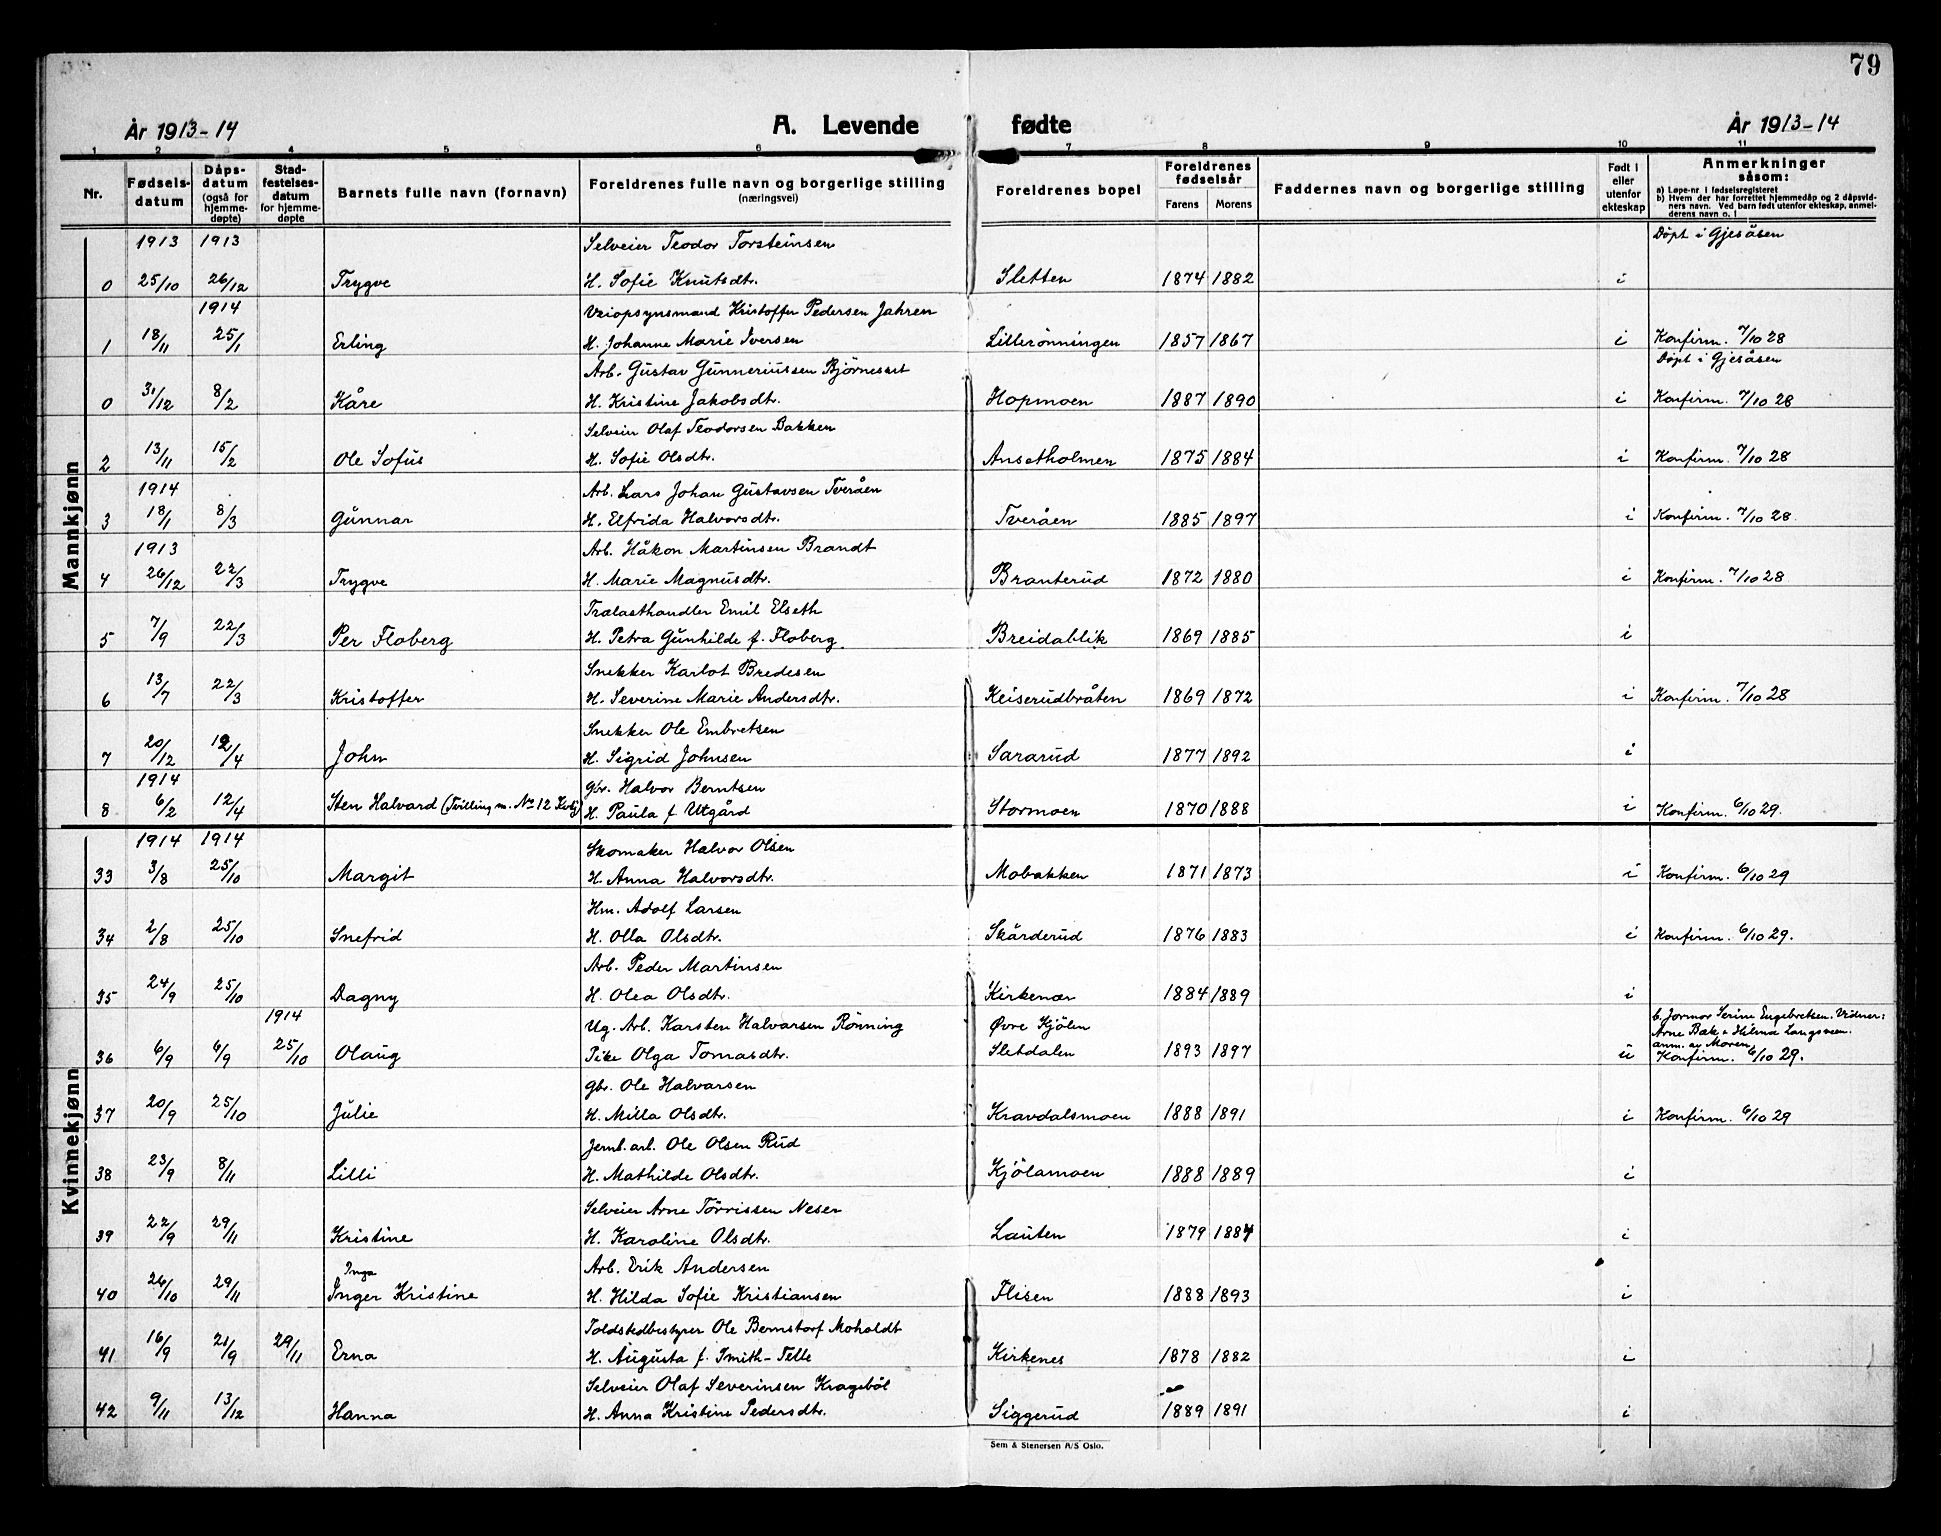 79
År 1913-14 A. Levende fødte År 1913-14
1 2 3 4 5 6 7 8 9 10 11
Nr. Fødsels-datum Dåps-datum (også for hjemme-døpte) Stad-festelses-datum for hjemme-døpte Barnets fulle navn (fornavn) Foreldrenes fulle navn og borgerlige stilling (næringsvei) Foreldrenes bopel Foreldrenes fødselsår Farens Morens Faddernes navn og borgerlige stilling Født i eller utenfor ekteskap Anmerkninger såsom:
a) Løpe-nr. i fødselsregisteret
b) Hvem der har forrettet hjemmedåp og 2 dåpsvid-
ners navn. Ved barn født utenfor ekteskap, anmel-
derens navn o. l
Mannkjønn
1913 1913 Selveier Teodor Torsteinsen Døpt i Gjesåsen
0 25/10 26/12 Trygve H. Sofie Knutsdtr. Sletten 1874 1882 i
1914 Veiopsynsmand Kristoffer Pedersen Jahren
1 18/11 25/1 Erling H. Johanne Marie Iversen Lillerönningen 1857 1867 i Konfirm. 7/10 28
Arb. Gustav Gunneriussen Björneset Døpt i Gjesåsen
0 31/12 8/2 Kåre H. Kristine Jakobsdtr. Hopmoen 1887 1890 i Konfirm. 7/10 28
Selveier Olaf Teodorsen Bakken
2 13/11 15/2 Ole Sofus H. Sofie Olsdtr. Ansetholmen 1875 1884 i Konfirm. 7/10 28
1914 Arb. Lars Johan Gustavsen Tveråen
3 18/1 8/3 Gunnar H. Elfrida Halvorsdtr. Tveråen 1885 1897 i Konfirm. 7/10 28.
1913 Arb. Håkon Martinsen Brandt
4 26/12 22/3 Trygve H. Marie Magnusdtr. Branterud 1872 1880 i Konfirm. 7/10 28
Trælasthandler Emil Elseth
5 7/9 22/3 Per Floberg H. Petra Gunhilde f. Floberg. Breidablik 1869 1885 i
Snekker Karlot Bredesen
6 13/7 22/3 Kristoffer H. Severine Marie Andersdtr. Keiserudbråten 1869 1872 i Konfirm. 7/10 28
Snekker Ole Embretsen
7 20/12 12/4 John H. Sigrid Johnsen Sararud 1877 1892 i
1914 gbr. Halvor Berntsen
8 6/2 12/4 Sten Halvard (Tvilling m. No 12 Kvkj) H. Paula f. Utgård Stormoen 1870 1888 i Konfirm. 6/10 29.
Kvinnekjønn
1914 1914 Skomaker Halvor Olsen
33 3/8 25/10 Margit H. Anna Halvorsdtr. Mobakken 1871 1873 i Konfirm. 6/10 29
Hm. Adolf Larsen
34 2/8 25/10 Snefrid H. Olla Olsdtr. Skårderud 1876 1883 i Konfirm. 6/10 29.
Arb. Peder Martinsen
35 24/9 25/10 Dagny H. Olea Olsdtr. Kirkenær 1884 1889 i
1914 Ug. Arb. Karsten Halvarsen Rönning Øvre Kjölen b. Jormor Serine Engebretsen. Vidner:
Arne Bæk & Hilma Langsveen.
anm. av Moren,
36 6/9 6/9 25/10 Olaug Pike Olga Tomasdtr. Sletdalen 1893 1897 u Konfirm. 6/10 29.
gbr. Ole Halvarsen
37 20/9 25/10 Julie H. Milla Olsdtr. Kravdalsmoen 1888 1891 i Konfirm. 6/10 29
Jernb. arb. Ole Olsen Rud
38 23/9 8/11 Lilli H. Mathilde Olsdtr. Kjölamoen 1888 1889 i
Selveier Arne Törrissen Neser
39 22/9 29/11 Kristine H. Karoline Olsdtr. Lauten 1879 1884 i
Inga Arb. Erik Andersen
40 26/10 29/11 Inger Kristine H. Hilda Sofie Kristiansen Flisen 1888 1893 i
Toldstedbestyrer Ole Bernstorf Moholdt
41 16/9 21/9 29/11 Erna H. Augusta f. Smith-Telle Kirkenes 1878 1882 i
Selveier Olaf Severinsen Krageböl
42 9/11 13/12 Hanna H. Anna Kristine Pedersdtr. Siggerud 1889 1891 i
Sem & Stenersen A/S Oslo.